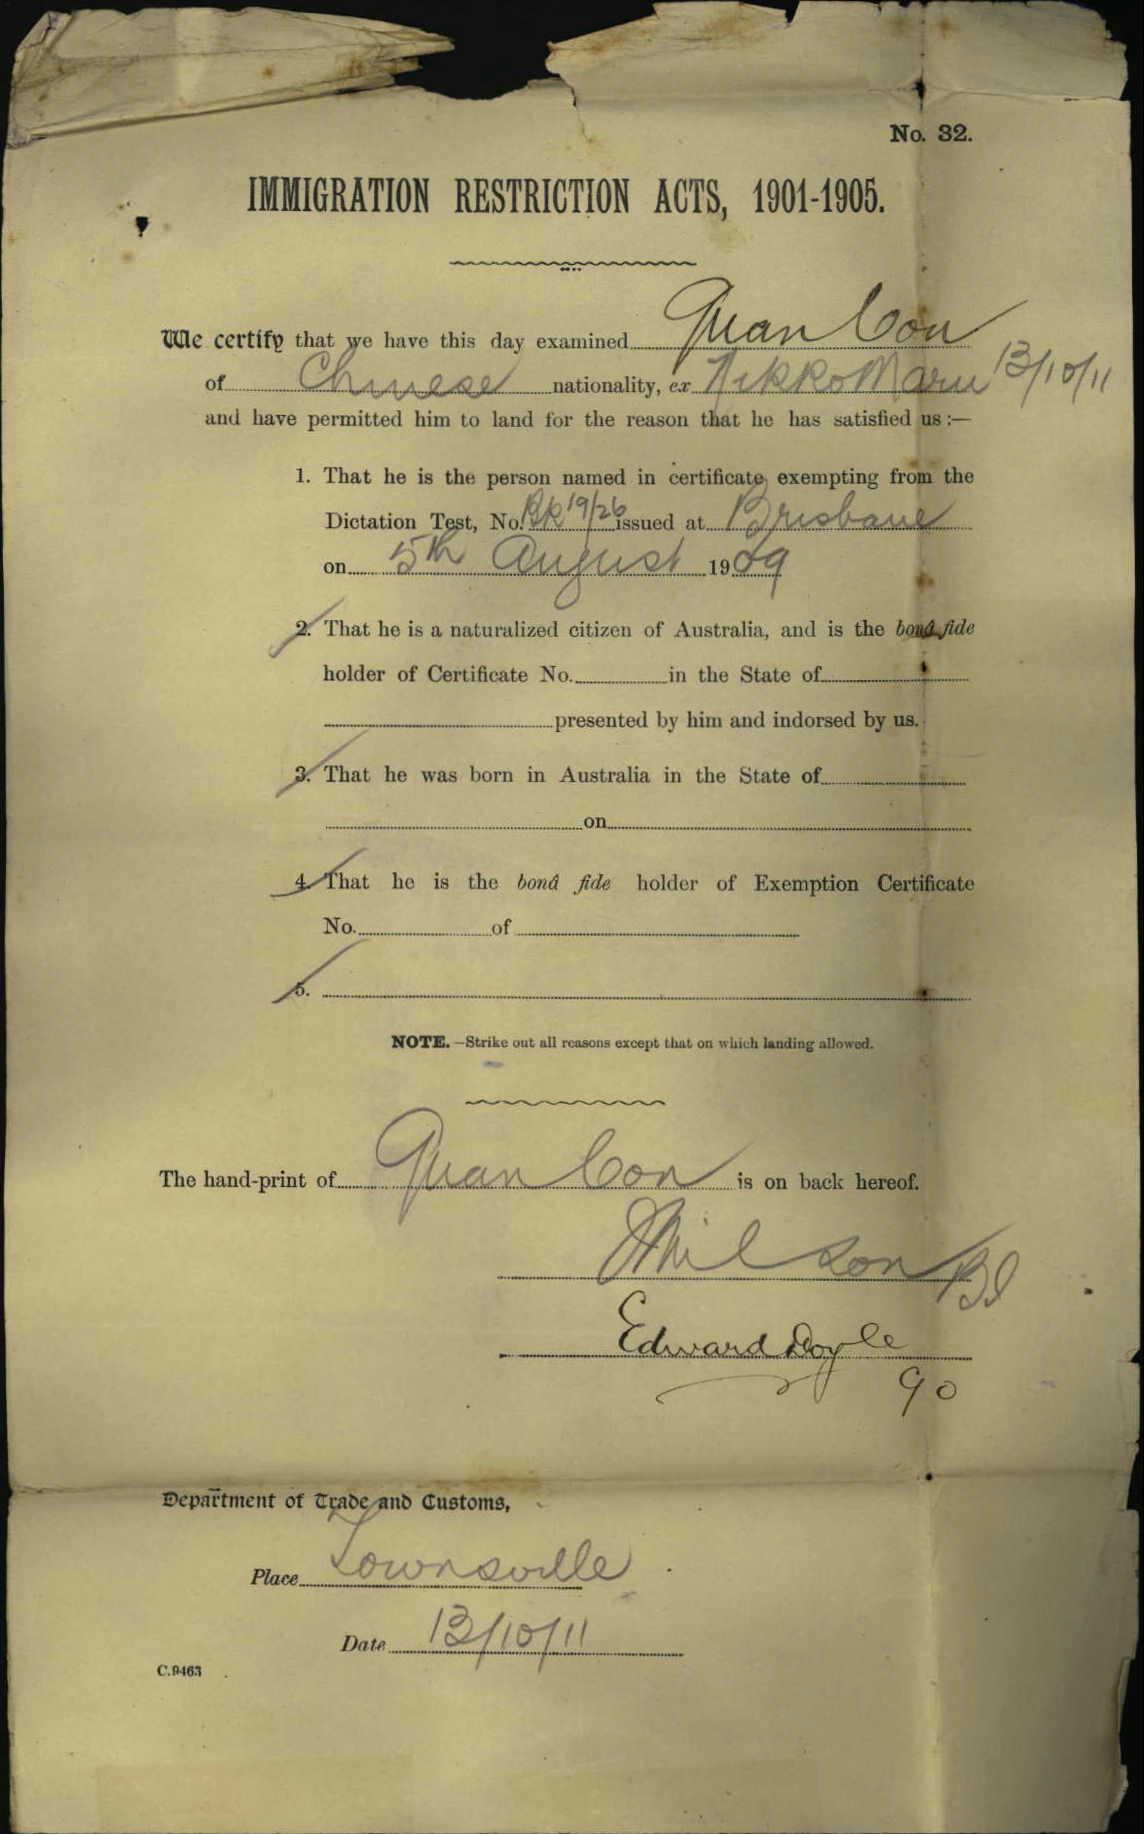 No. 32.
IMMIGRATION RESTRICTION ACTS, 1901-1905.
We certify that we have this day examined Quan Con
of Chinese nationality, ex Nikko Maru 13/10/11
and have permitted him to land for the reason that he has satisfied us :—
1. That he is the person named in certificate exempting from the
Dictation Test, No. Bk 19/26 issued at Brisbane
on 5th August 1909
2. That he is a naturalized citizen of Australia, and is the bonâ fide
holder of Certificate No. in the State of
presented by him and indorsed by us.
3. That he was born in Australia in the State of
on
4. That he is the bonâ fide holder of Exemption Certificate
No. of
5.
NOTE.—Strike out all reasons except that on which landing allowed.
The hand-print of Quan Con is on back hereof.
Edward Doyle
Department of Trade and Customs,
Place Townsville
Date 13/10/11
C.9463